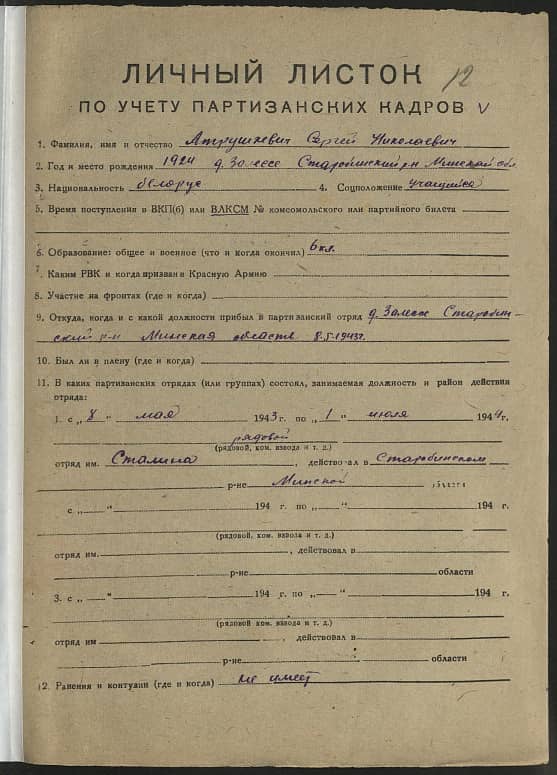 ЛИЧНЫЙ ЛИСТОК 12
ПО УЧЕТУ ПАРТИЗАНСКИХ КАДРОВ V
1. Фамилия, имя и отчество Атрушкевич Сергей Николаевич
2. Год и место рождения 1924 д. Залесье Старобинский р-н Минской обл
3. Национальность белорус 4. Соцположение учащийся
5. Время поступления в ВКП(б) или ВЛКСМ № комсомольского или партийного билета
6. Образование: общее и военное (что и когда окончил) 6 кл.
7. Каким РВК и когда призван в Красную Армию
8. Участие на фронтах (где и когда)
9. Откуда, когда и с какой должности прибыл в партизанский отряд д. Залесье Старобин-
ский р-н Минская область 8.5.1943 г.
10. Был ли в плену (где и когда)
11. В каких партизанских отрядах (или группах) состоял, занимаемая должность и район действия
отряда:
1. с „8" мая 1943 г. по „1" июля 1944 г.
рядовой
(рядовой, ком. взвода и т. д.)
отряд им. Сталина, действовал в Старобинском
р-не Минской области
с „ " 194 г. по „ " 194 г.
(рядовой, ком. взвода и т. д.)
отряд им. , действовал в
р-не области
3. с „ " 194 г. по „ " 194 г.
(рядовой, ком. взвода и т. д.)
отряд им , действовал в
р-не области
12. Ранения и контузии (где и когда) не имеет